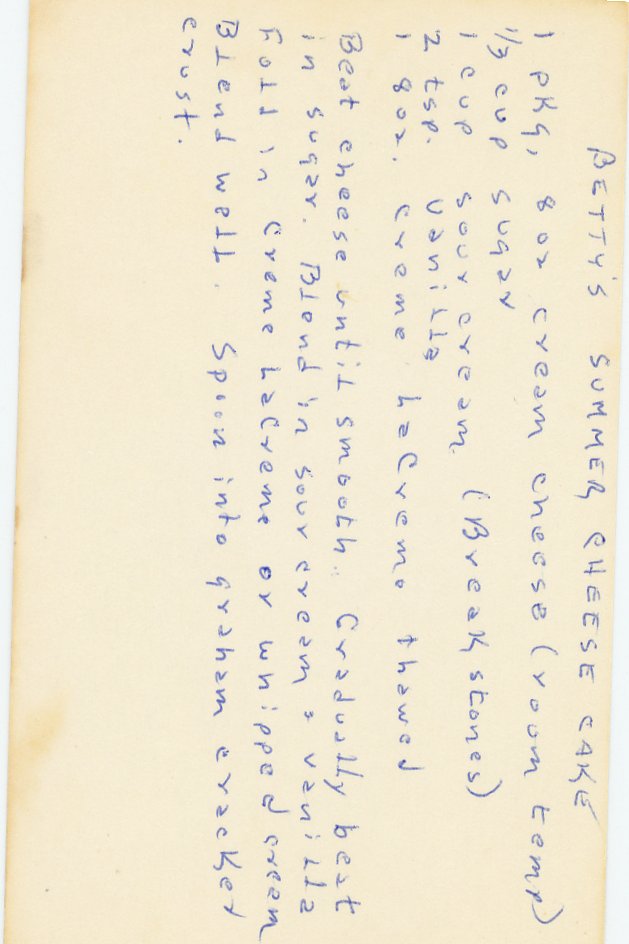 BETTY'S SUMMER CHEESE CAKE
1 pkg, 8oz cream cheese (room temp)
1/3 cup sugar
1 cup sour cream (Breakstones)
2 tsp. vanilla
1 8oz. creme LaCreme thawed
Beat cheese until smooth. Gradually beat
in sugar. Blend in sour cream & vanilla
Fold in Creme LaCreme or whipped cream
Blend well. Spoon into graham cracker
crust.